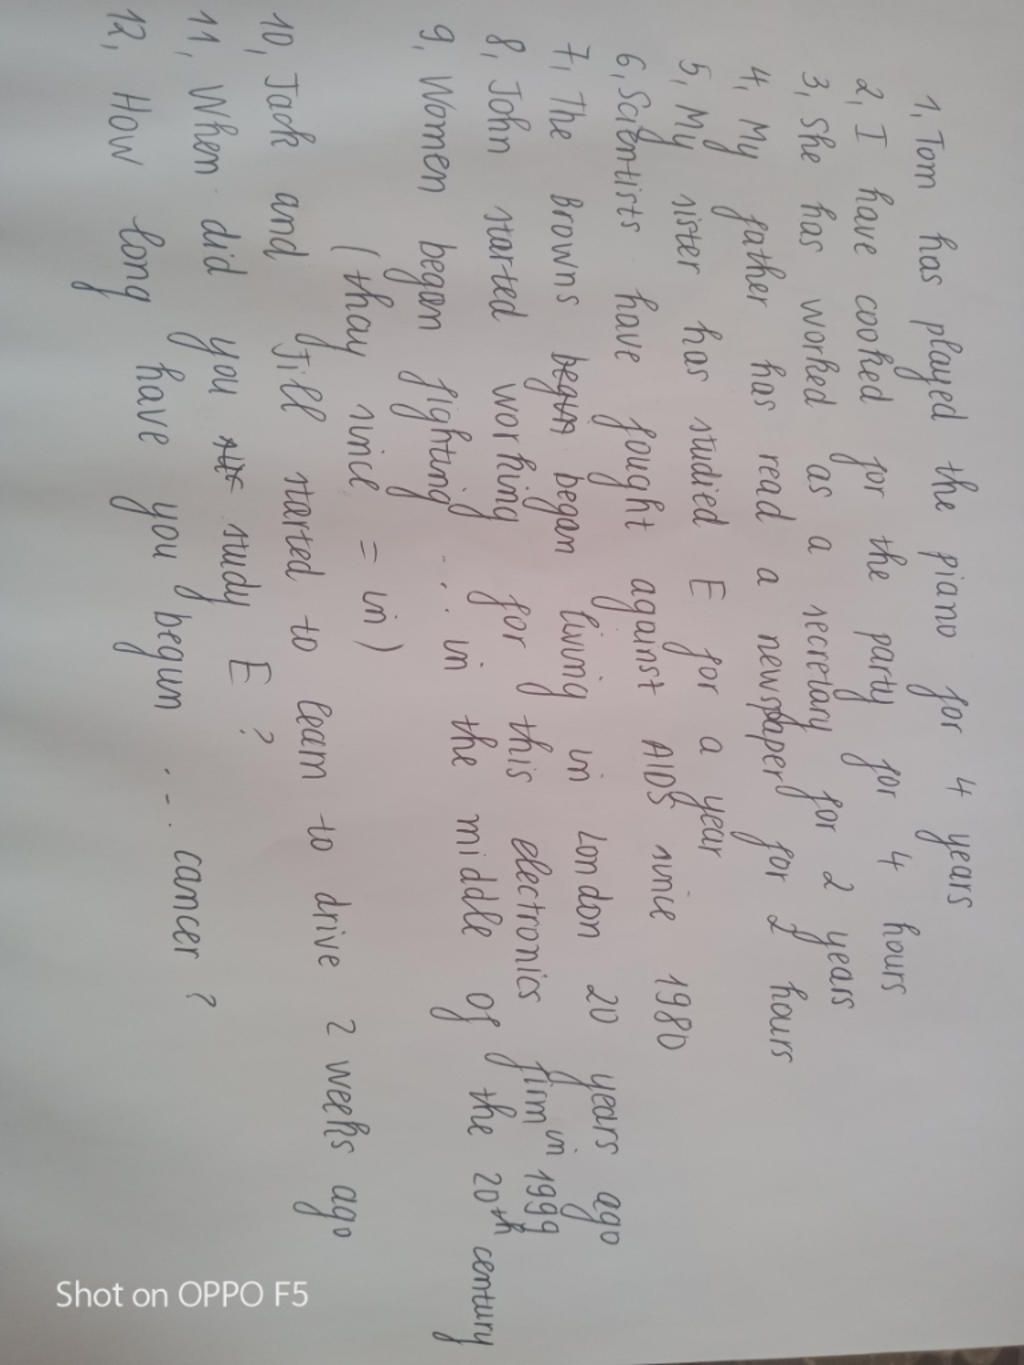 1, Tom has played the piano for 4 years
2, I have cooked for the party for 4 hours
3, She has worked as a secretary for 2 years
4, My father has read a newspaper for 2 hours
5, My sister has studied E for a year
6, Scientists have fought against AIDS since 1980
7, The Browns began living in London 20 years ago
8, John started working for this electronics firm in 1999
9, Women began fighting ... in the middle of the 20th century
(thay since = in)
10, Jack and Jill started to learn to drive 2 weeks ago
11, When did you study E ?
12, How long have you begun ... cancer ?
Shot on OPPO F5